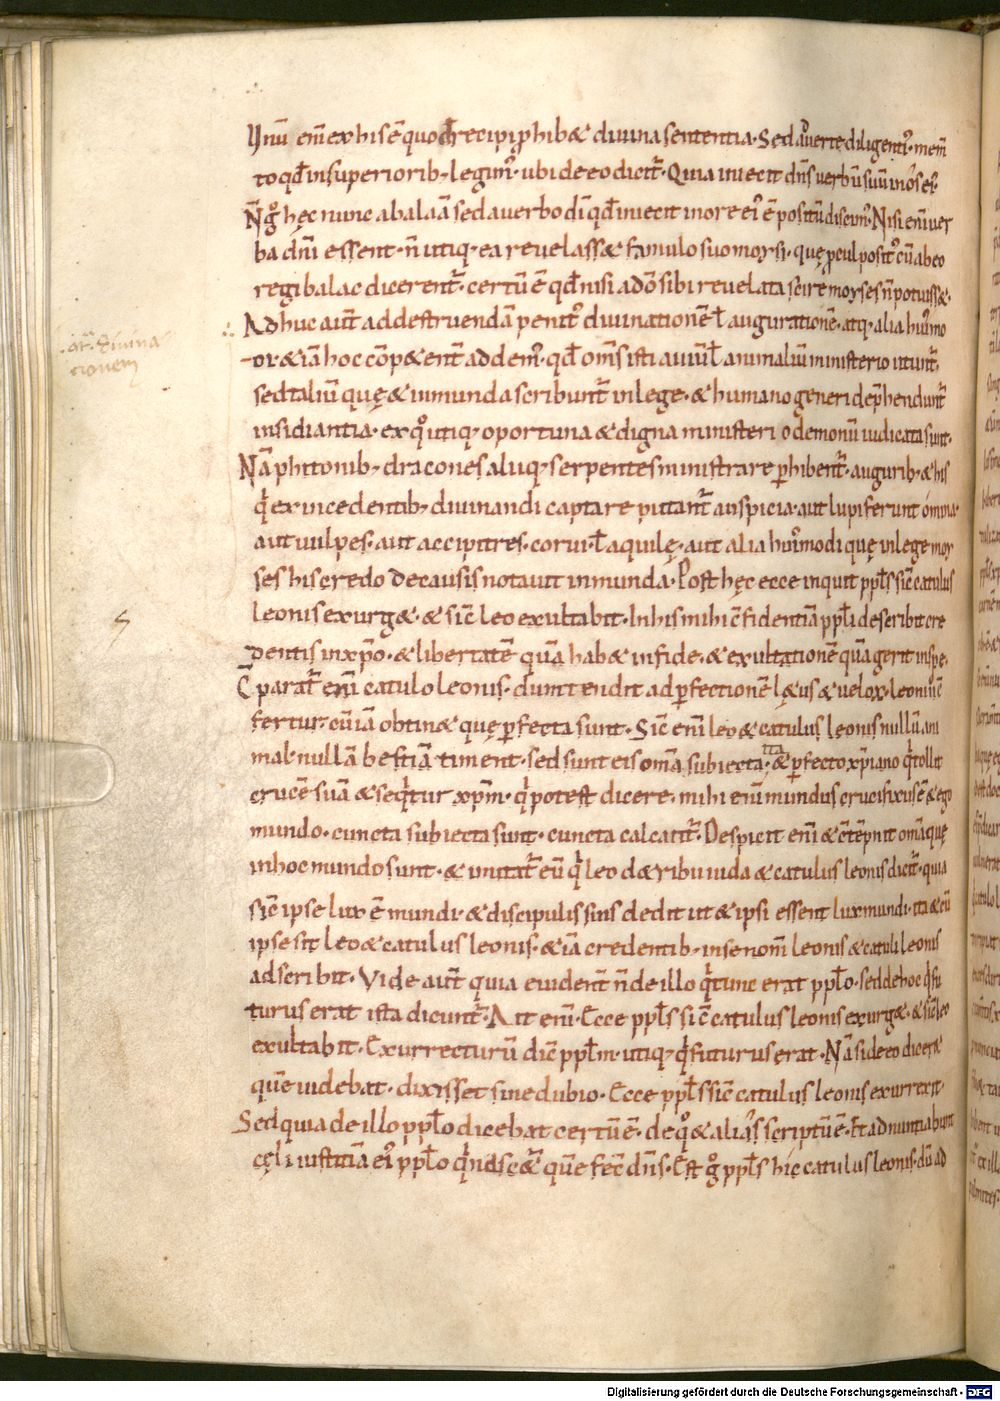 Unū eñi ex his ē quod recipi phib& diuina sententia. Sed aduerte diligent᷒. mem
to qđ in superiorib; legim᷒. ubi de eo dicit᷑. Quia iniecit dñs uerbū suū in os ei᷒.
Ñ gͦ hęc nunc a balaā sed a uerbo dī qđ iniecit in ore ei᷒ ē positū discim᷒. Nisi eñi uer
ba dñi essent. ñ utiq; ea reuelass& famulo suo moysi. quę pcul posit᷒ cū abeo
regi balac dicerent᷑. certū ē qđ nisi a dō sibi reuelata scire moyses ñ potuiss&.
Adhuc aūt ad destruendā penit᷒ diuinationē ł augurationē. atq; alia hui᷒mo
or &iā hoc cōp&ent᷑ addem᷒. qđ om̄s isti auiū ł animaliū ministerio utunt᷑.
sed taliū quę & inmunda scribunt᷑ in lege. & humano generi dep̄hendunt᷑
insidiantia. ex qͦ utiq; oportuna & digna ministerio demonū iudicata sunt.
Nā phitonib; dracones aliiq; serpentes ministrare phibent᷑. augurib; & his
qͥ ex incedentib; diuinandi captare putant᷑ auspicia. aut lupi ferunt omina.
aut uulpes. aut accipitres. corui. ł aquilę. aut alia hui᷒modi quę in lege moy
ses his credo de causis notauit inmunda. Post hęc ecce inquit ppl̄s sic̄ catulus
leonis exurg&. & sic̄ leo exultabit. In his mihi c̄fidentiā ppl̄i describit cre
dentis in xp̄o. & libertatē quā hab& in fide. & exultationē quā gerit in spe.
Cparat᷑ eñi catulo leonis. dum tendit ad pfectionē l&us & uelox. leoni
fertur. cū iā obtin& quę pfecta sunt. Sic̄ eñi leo & catulus leonis nullū ani
mal. nullā bestiā timent. sed sunt eis om̄a subiecta. ita & pfecto xp̄iano qͥ tollit
crucē suā & seqͥtur xp̄m. qͥ potest dicere. mihi eñi mundus crucifixus ē & ego
mundo. cuncta subiecta sunt. cuncta calcat᷑. Despicit eñi & c̄tēpnit om̄a quę
in hoc mundo sunt. & imitat᷑ eū qͥ leo de tribu iuda & catulus leonis dicit᷑. quia
sic̄ ipse lux ē mundi. & discipulis suis dedit ut & ipsi essent lux mundi. ita & cū
ipse sit leo & catulus leonis. &iā credentib; in se nom̄ leonis & catuli leonis
adscribit. Vide aūt quia euident᷑ ñ de illo qͥ tunc erat ppl̄o. sed de hoc qͥ fu
turus erat ista dicunt᷑. Ait eñi. Ecce ppl̄s sic̄ catulus leonis exurg&. & sic̄ leo
exultabit. Exurrecturū dic̄ ppl̄m. utiq; qͥ futurus erat. Nā si de eo dicer&
quē uidebat. dixisset sine dubio. Ecce ppl̄s sic̄ catulus leonis exurrexit.
Sed quia de illo ppl̄o dicebat certū ē. de qͦ & alias scriptū ē. Et adnuntiabunt
cęli iustitiā ei᷒ ppl̄o qͥ nasc&᷑ quē fec̄ dñs. Est gͦ ppl̄s hic catulus leonis. dū ad
Digitalisierung gefördert durch die Deutsche Forschungsgemeinschaft - DFG